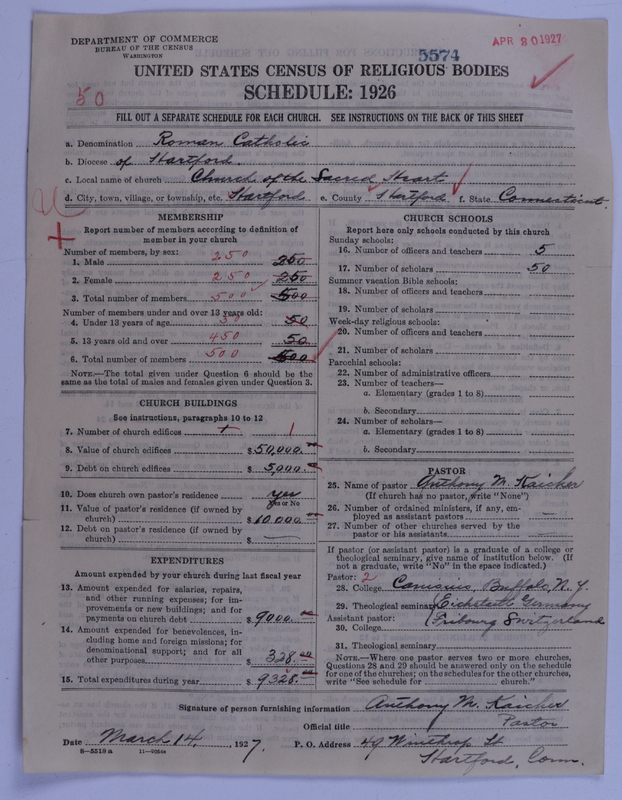 DEPARTMENT OF COMMERCE
BUREAU OF THE CENSUS
WASHINGTON
5574
APR 30 1927
UNITED STATES CENSUS OF RELIGIOUS BODIES
SCHEDULE: 1926
50
FILL OUT A SEPARATE SCHEDULE FOR EACH CHURCH. SEE INSTRUCTIONS ON THE BACK OF THIS SHEET
a. Denomination Roman Catholic
b. Diocese of Hartford.
c. Local name of church Church of the Sacred Heart
d. City, town, village, or township, etc. Hartford e. County Hartford f. State Connecticut.
MEMBERSHIP
Report number of members according to definition of
member in your church
Number of members, by sex:
1. Male 250 250
2. Female 250 250
3. Total number of members 500 500
Number of members under and over 13 years old:
4. Under 13 years of age 50 50
5. 13 years old and over 450 50
6. Total number of members 500 500
NOTE.—The total given under Question 6 should be the
same as the total of males and females given under Question 3.
CHURCH BUILDINGS
See instructions, paragraphs 10 to 12
7. Number of church edifices 1
8. Value of church edifices $50,000.
9. Debt on church edifices $5,000.
10. Does church own pastor's residence yes
Yes or No
11. Value of pastor's residence (if owned by
church) $10,000.
12. Debt on pastor's residence (if owned by
church) $ —
EXPENDITURES
Amount expended by your church during last fiscal year
13. Amount expended for salaries, repairs,
and other running expenses; for im-
provements or new buildings; and for
payments on church debt $9000.
14. Amount expended for benevolences, in-
cluding home and foreign missions; for
denominational support; and for all
other purposes $328.00
15. Total expenditures during year $9328.
CHURCH SCHOOLS
Report here only schools conducted by this church
Sunday schools:
16. Number of officers and teachers 5
17. Number of scholars 50
Summer vacation Bible schools:
18. Number of officers and teachers
19. Number of scholars
Week-day religious schools:
20. Number of officers and teachers
21. Number of scholars
Parochial schools:
22. Number of administrative officers
23. Number of teachers—
a. Elementary (grades 1 to 8)
b. Secondary
24. Number of scholars—
a. Elementary (grades 1 to 8)
b. Secondary
PASTOR
25. Name of pastor Anthony M. Kaicher
(If church has no pastor, write "None")
26. Number of ordained ministers, if any, em-
ployed as assistant pastors —
27. Number of other churches served by the
pastor or his assistants —
If pastor (or assistant pastor) is a graduate of a college or
theological seminary, give name of institution below. (If
not a graduate, write "No" in the space indicated.)
Pastor: 2
28. College Canisius, Buffalo, N. Y.
29. Theological seminary Eichstaett Germany
Assistant pastor: Fribourg Switzerland
30. College
31. Theological seminary
NOTE.—Where one pastor serves two or more churches,
Questions 28 and 29 should be answered only on the schedule
for one of the churches; on the schedules for the other churches,
write "See schedule for church."
Signature of person furnishing information Anthony M. Kaicher
Official title Pastor
Date March 14, 1927. P. O. Address 49 Winthrop St
Hartford, Conn.